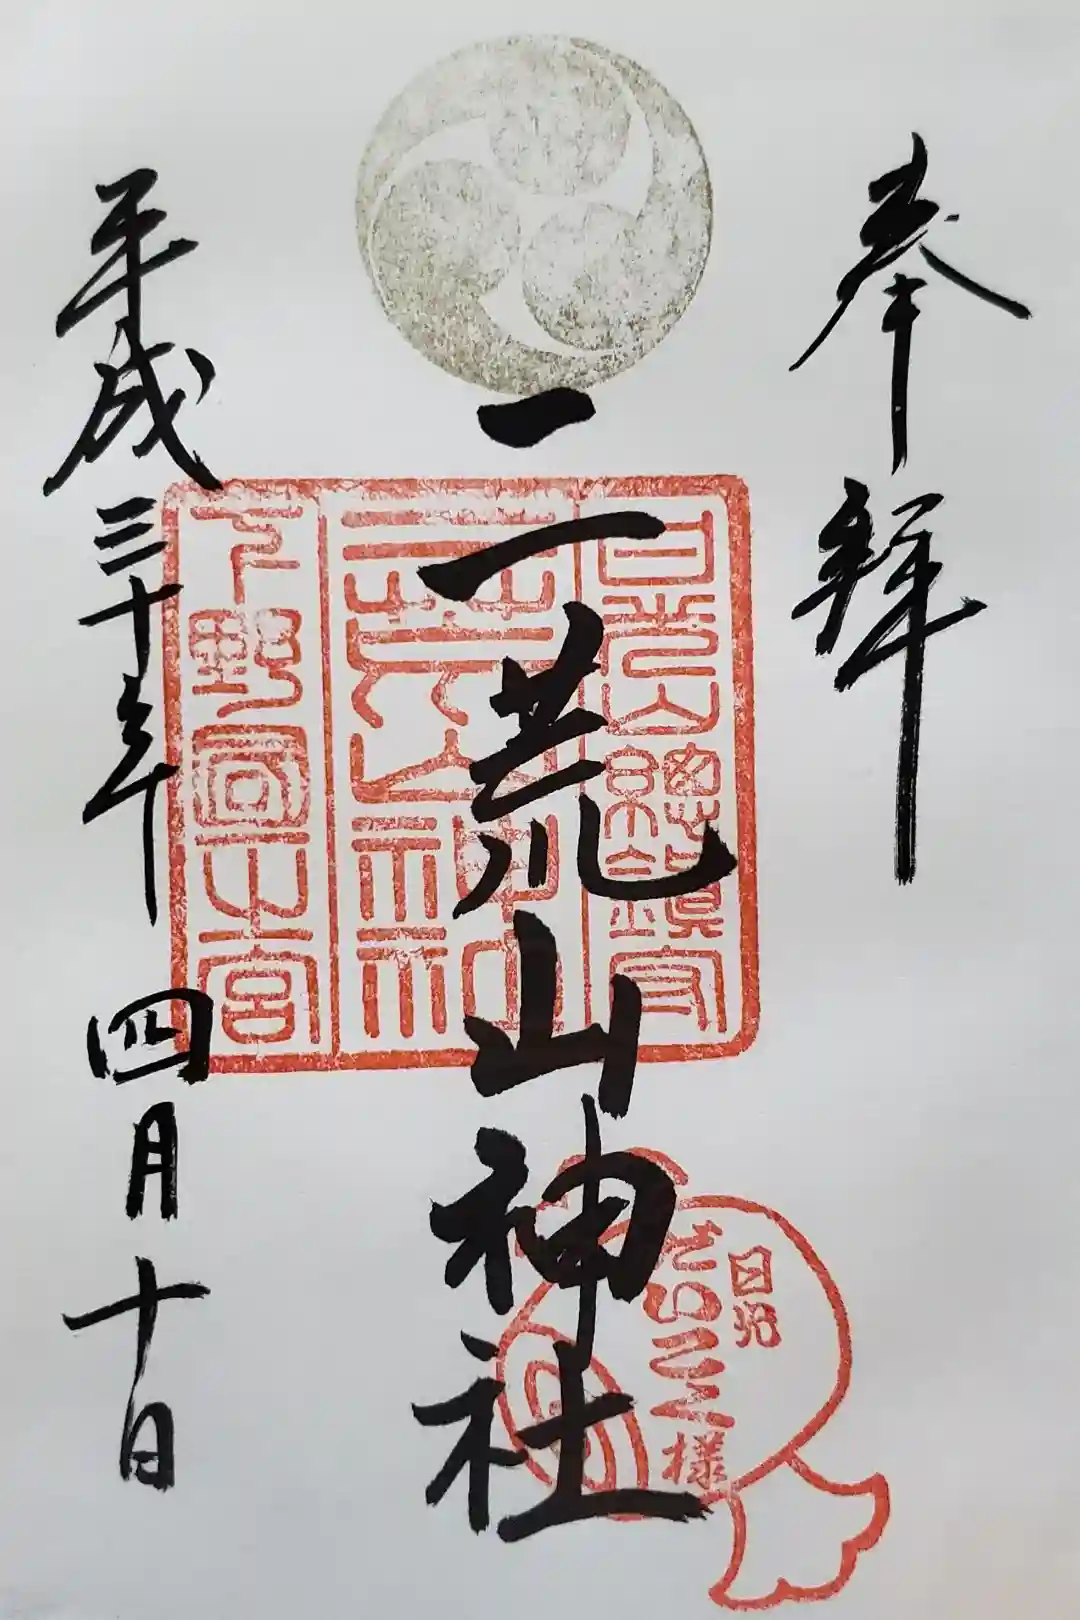 奉拝
日光山總鎮守
二荒山神社
二荒山神社
下野國一之宮
日光
だいこく様
平成三十年四月十日